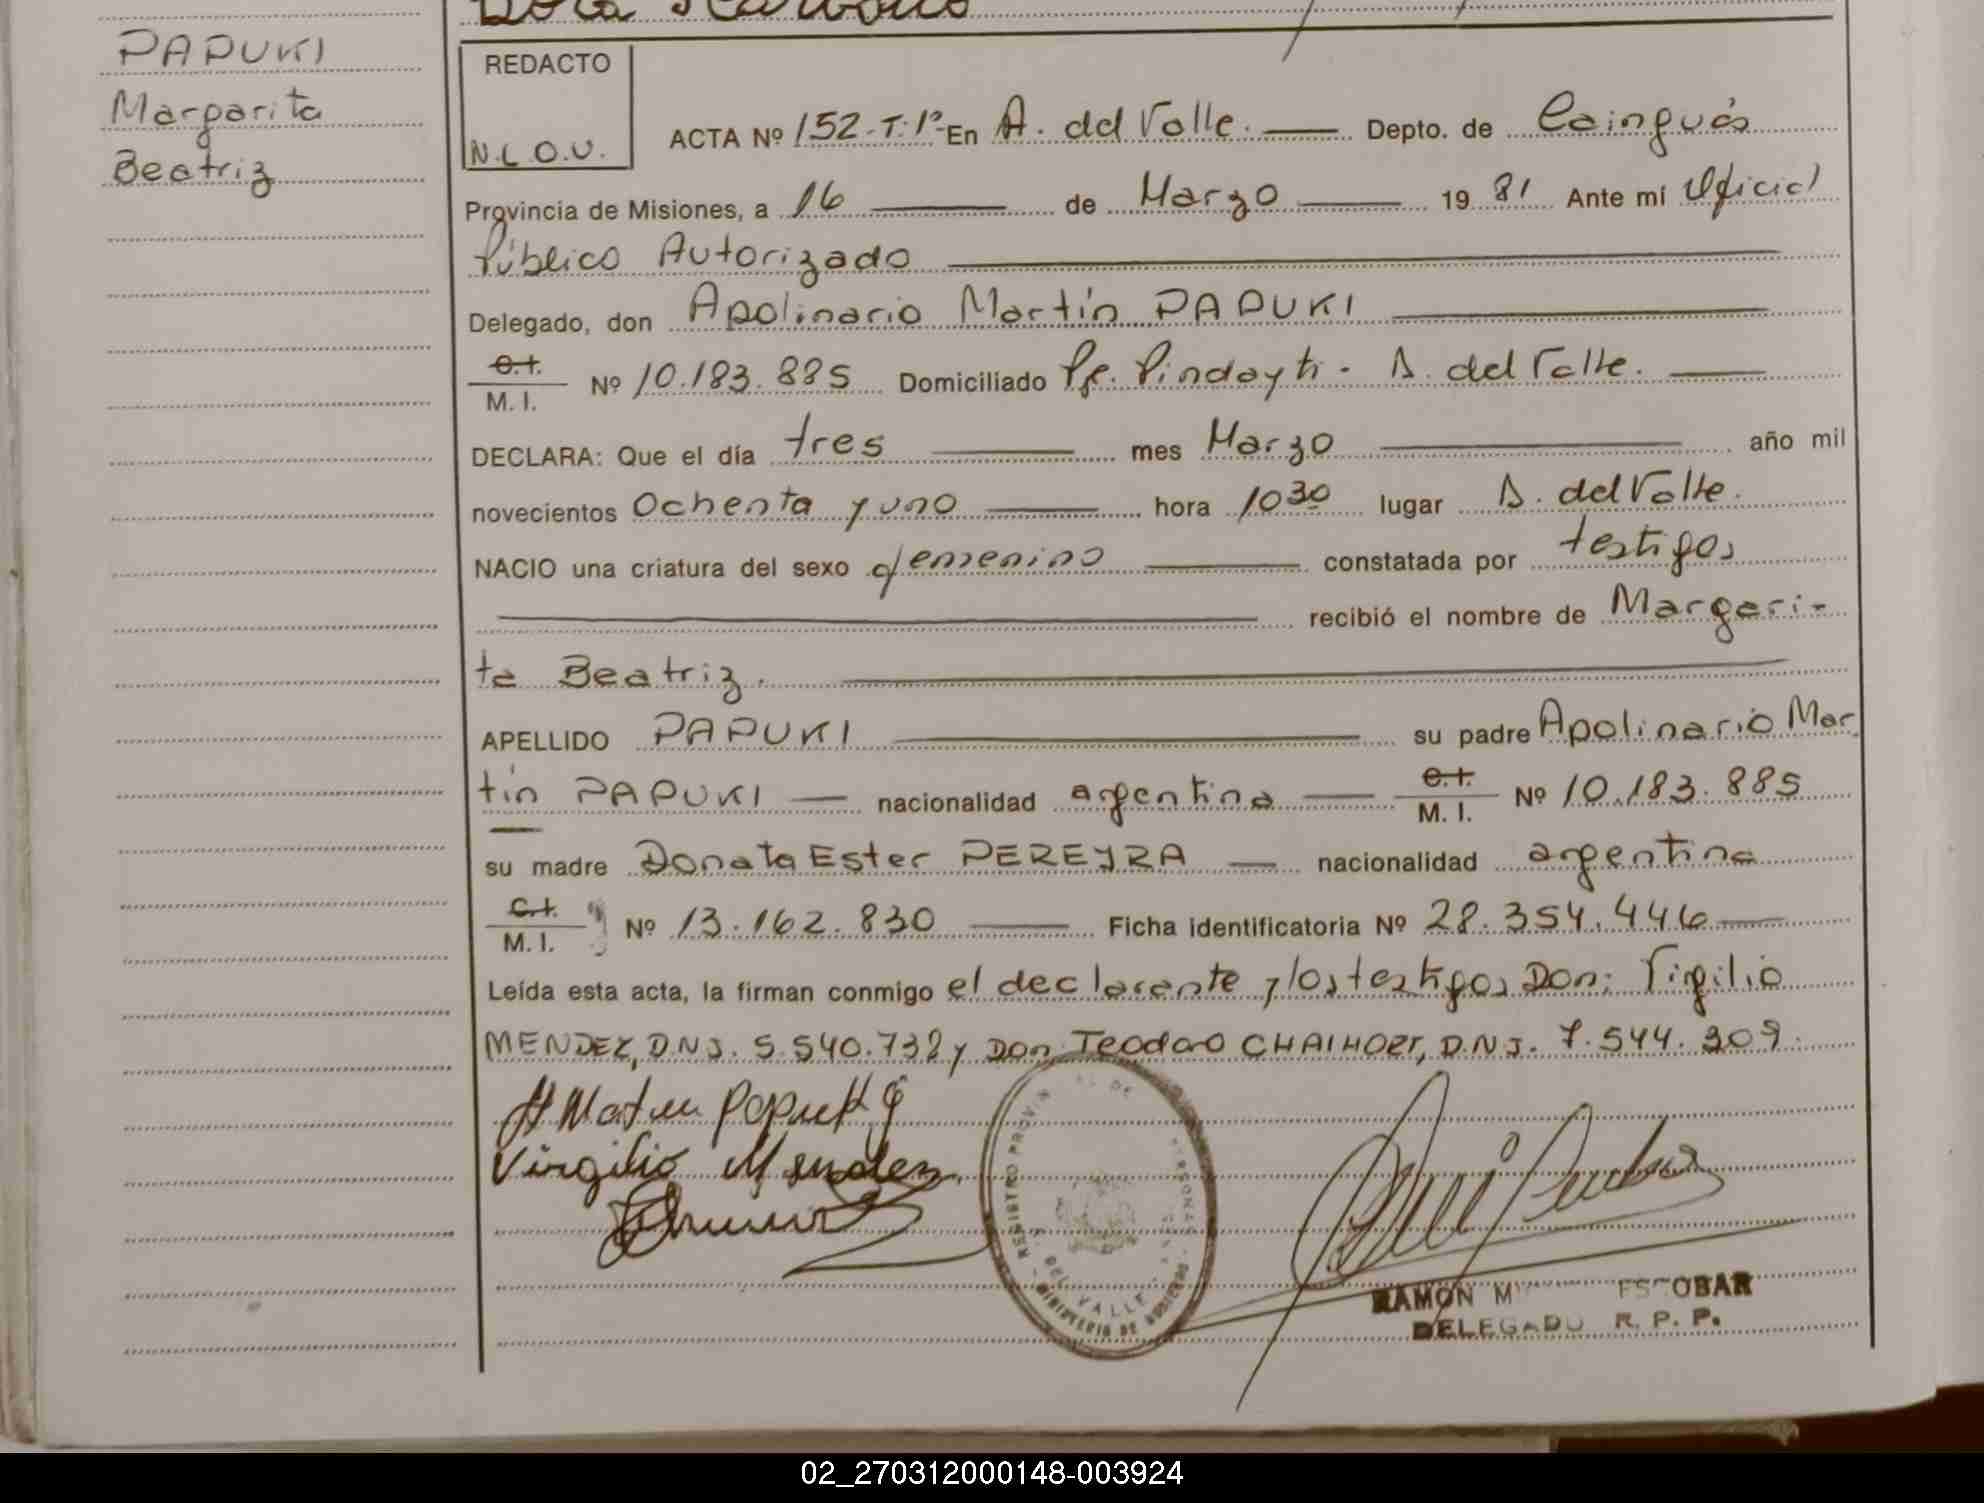 PAPUKI
Margarita
Beatriz
REDACTO
N.L.O.V.
ACTA Nº 152-T:1º- En A. del Valle. Depto. de Cainguás
Provincia de Misiones, a 16 de Marzo 1981 Ante mí Oficial
Público Autorizado
Delegado, don Apolinario Martín PAPUKI
C.I.
M. I. Nº 10.183.885 Domiciliado Pje. Pindayti - A. del Valle.
DECLARA: Que el día tres mes Marzo año mil
novecientos Ochenta y uno hora 10 30 lugar A. del Valle.
NACIO una criatura del sexo femenino constatada por testigos
recibió el nombre de Margari-
ta Beatriz.
APELLIDO PAPUKI su padre Apolinario Mar
tín PAPUKI nacionalidad argentina C.I. M. I. Nº 10.183.885
su madre Donata Ester PEREYRA nacionalidad argentina
C.I.
M. I. Nº 13.162.830 Ficha identificatoria Nº 28.354.446
Leída esta acta, la firman conmigo el declarante y los testigos Don: Virgilio
MENDEZ, D.N.I. 5.540.732 y Don Teodoro D.N.I. 7.544.309.
Virgilio Mendez
REGISTRO PROVIN DE PERSONAS
DEL VALLE
MINISTERIO DE GOBIERNO
RAMON ESCOBAR
DELEGADO R. P. P.
02_270312000148-003924